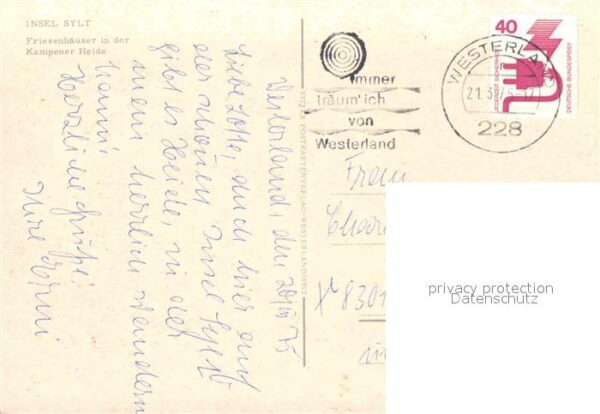 INSEL SYLT
Friesenhäuser in der
Kampener Heide
Westerland, den 20/III 75
Liebe Lotte, auch hier auf
der schönen Insel Sylt
gibt es Heide, in der
man herrlich wandern
kann!
Herzliche Grüße!
Ihre
SYLTER POSTKARTENVERLAG WESTERLAND/SYLT
immer
träum' ich
von
Westerland
WESTERLA
21.3.75-17
228
40
DEUTSCHE BUNDESPOST
JEDERZEIT SICHERHEIT
Frau
Char
8301
in
privacy protection
Datenschutz